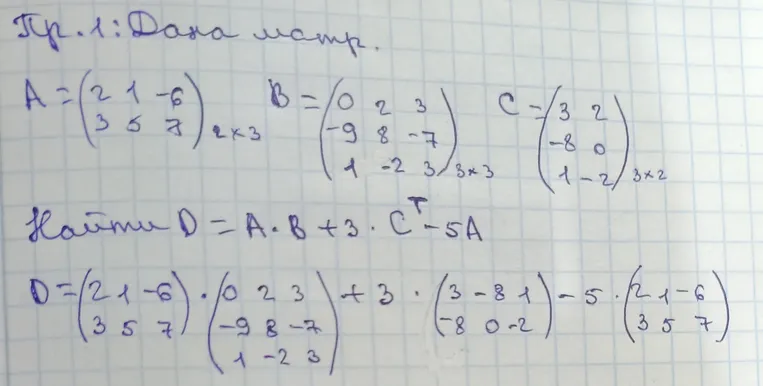 Пр. 1: Дана матр.
A = (2 1 -6
3 5 7) 2×3
B = (0 2 3
-9 8 -7
1 -2 3) 3×3
C = (3 2
-8 0
1 -2) 3×2
Найти D = A · B + 3 · C^T - 5A
D = (2 1 -6
3 5 7) · (0 2 3
-9 8 -7
1 -2 3) + 3 · (3 -8 1
-8 0 -2) - 5 · (2 1 -6
3 5 7)